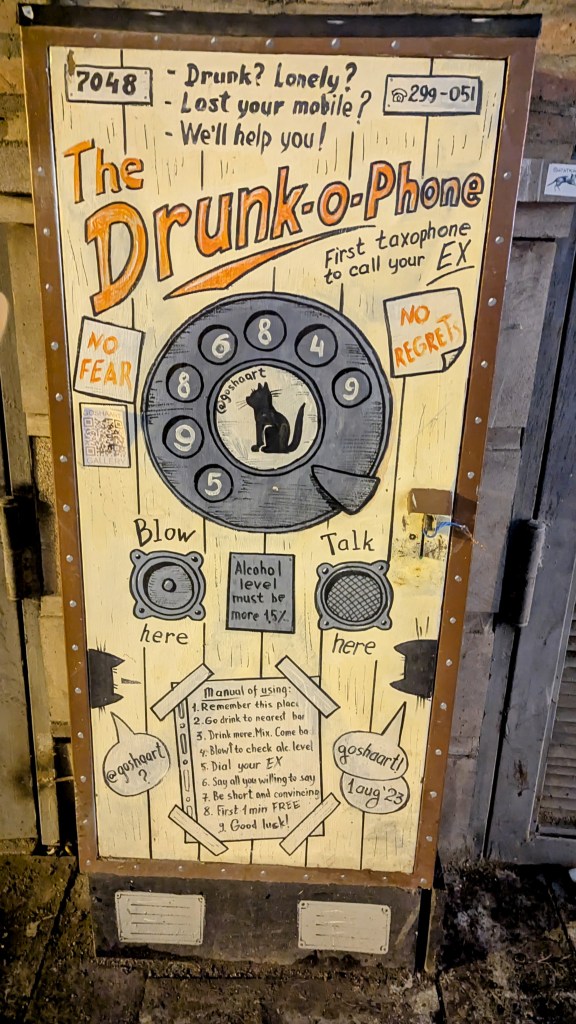 7048
- Drunk? Lonely?
- Lost your mobile?
- We'll help you!
☏299-051
The
Drunk-o-Phone
First taxophone
to call your EX
NO
FEAR
NO
REGRETS
5
9
8
6
8
4
9
@goshaart
GALLERY
Blow
here
Alcohol
level
must be
more 1,5%
Talk
here
Manual of using:
1. Remember this place
2. Go drink to nearest bar
3. Drink more. Mix. Come ba
4. Blow! to check alc. level
5. Dial your EX
6. Say all you willing to say
7. Be short and convincing
8. First 1 min FREE
9. Good luck!
@goshaart
?
goshaart!
1 aug '23